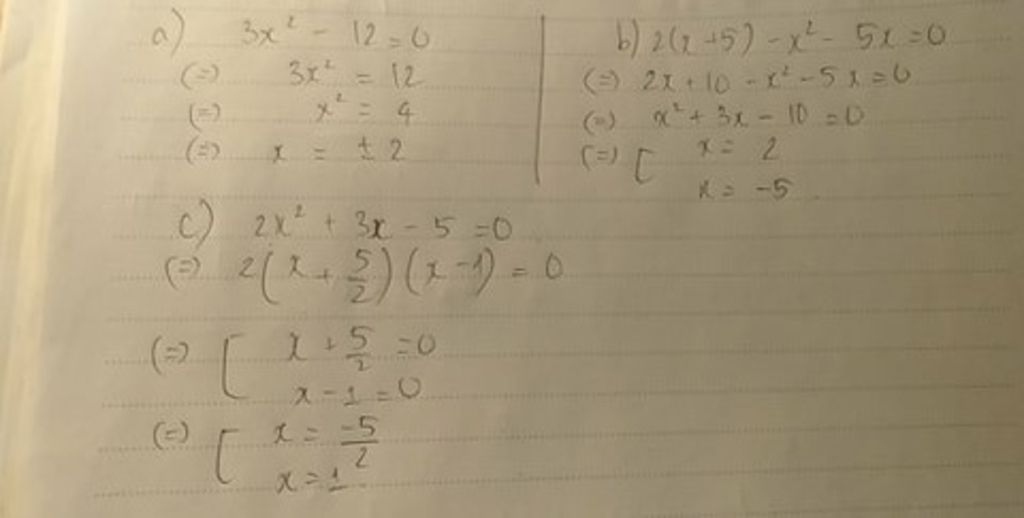 a) 3x² - 12 = 0
(=) 3x² = 12
(=) x² = 4
(=) x = ± 2
b) 2(x+5) - x² - 5x = 0
(=) 2x + 10 - x² - 5x = 0
(=) x² + 3x - 10 = 0
(=) [ x = 2
x = -5
c) 2x² + 3x - 5 = 0
(=) 2(x + 5/2)(x - 1) = 0
(=) [ x + 5/2 = 0
x - 1 = 0
(=) [ x = -5/2
x = 1